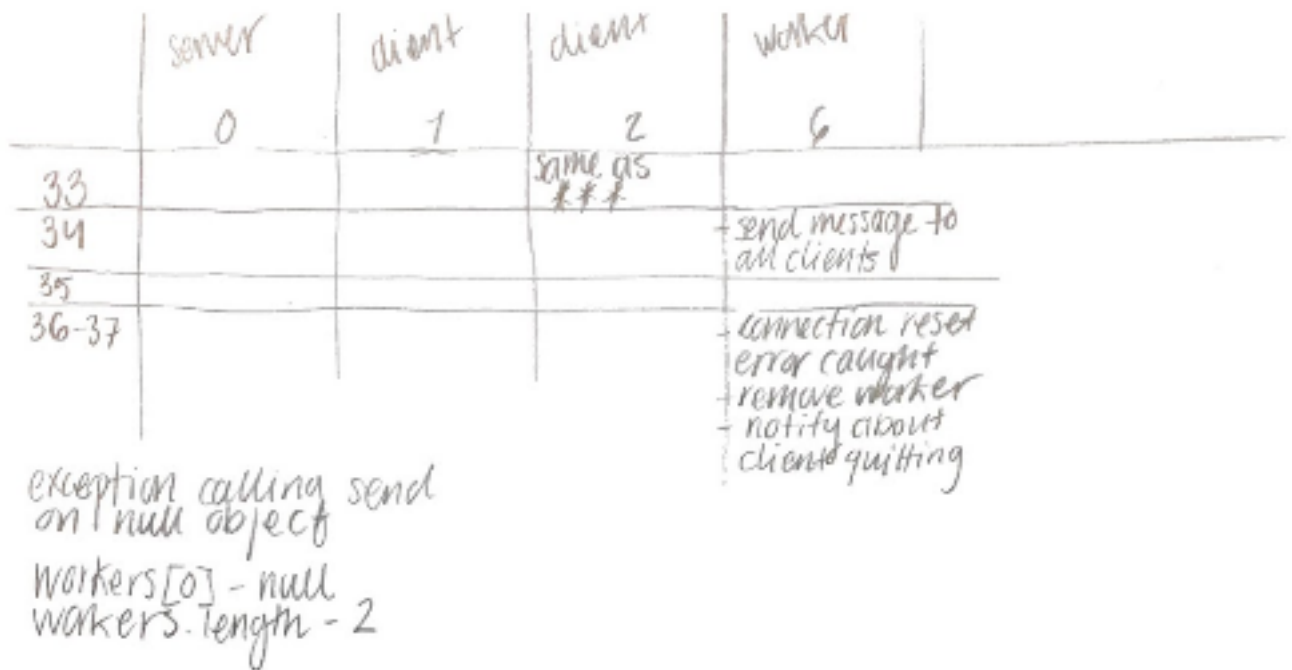 server client client worker
0 1 2 6
33 same as
***
34 - send message to
all clients
35
36-37 - connection reset
error caught
- remove worker
- notify about
client quitting
exception calling send
on null object
workers[0] - null
workers.length - 2